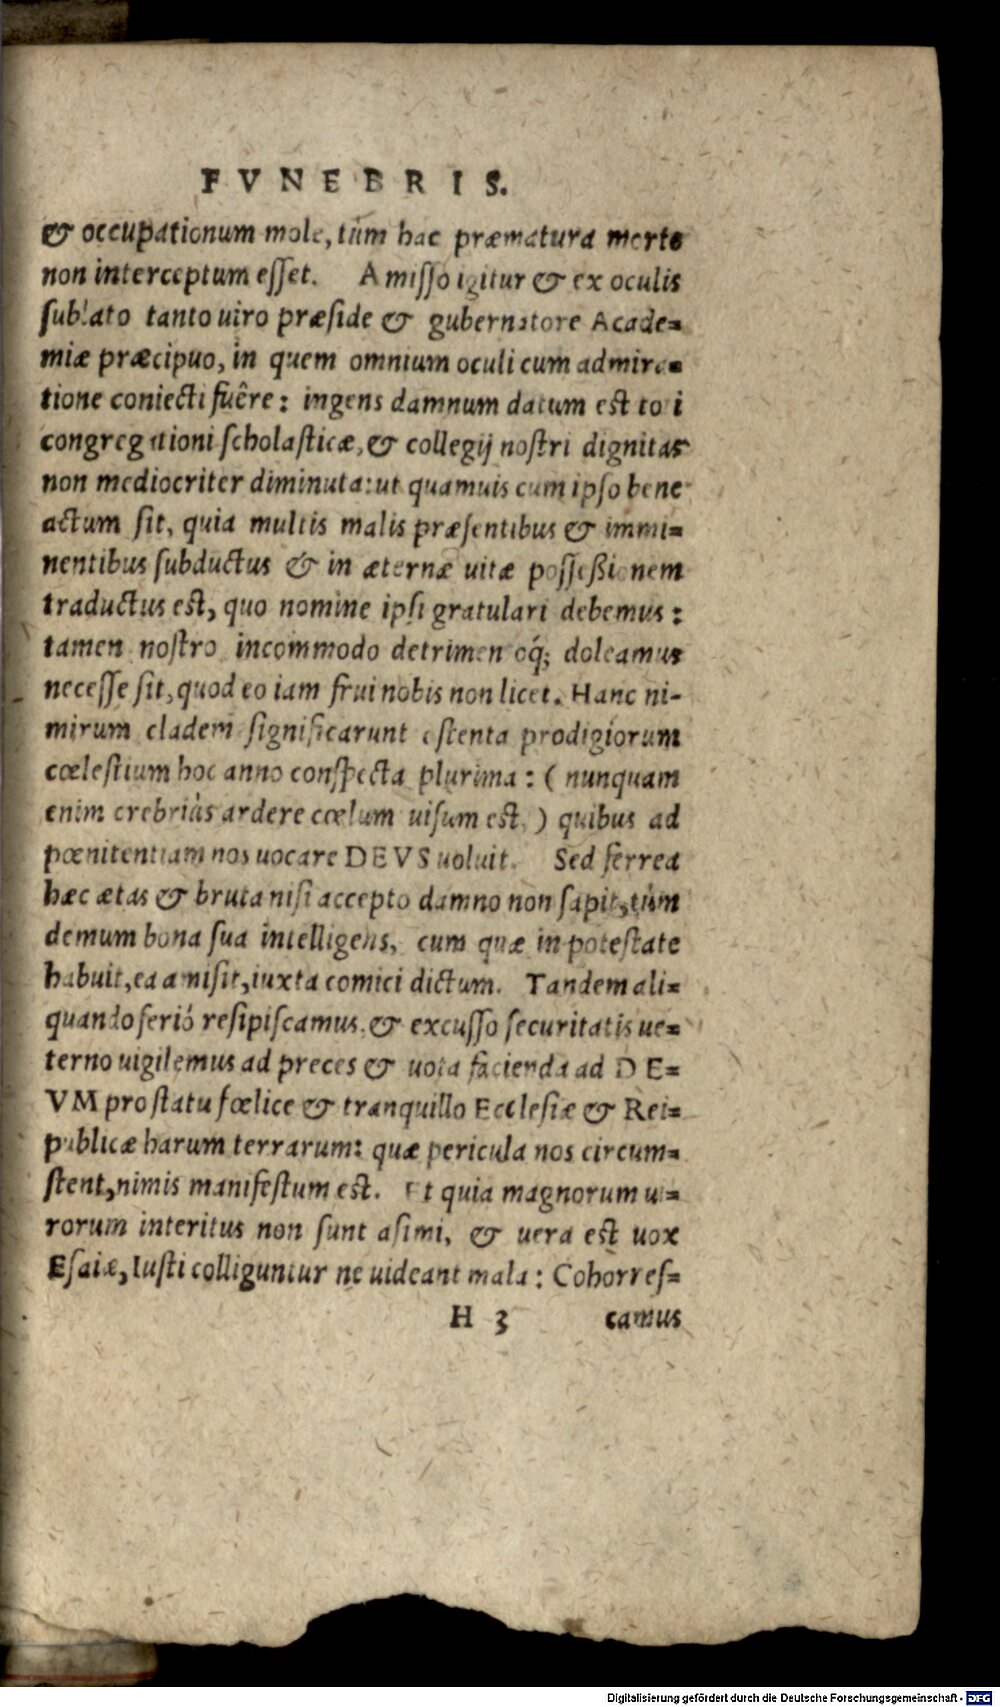 FVNEBRIS.
& occupationum mole, tùm hac præmatura morte
non interceptum esset. Amisso igitur & ex oculis
sublato tanto uiro præside & gubernatore Acade=
miæ præcipuo, in quem omnium oculi cum admira=
tione coniecti fuêre: ingens damnum datum est toti
congregationi scholasticæ, & collegij nostri dignitas
non mediocriter diminuta: ut quamuis cum ipso bene
actum sit, quia multis malis præsentibus & immi=
nentibus subductus & in æternæ uitæ possessionem
traductus est, quo nomine ipsi gratulari debemus:
tamen nostro incommodo detrimentoq́; doleamus
necesse sit, quod eo iam frui nobis non licet. Hanc ni-
mirum cladem significarunt ostenta prodigiorum
cœlestium hoc anno conspecta plurima: (nunquam
enim crebriùs ardere cœlum uisum est,) quibus ad
pœnitentiam nos uocare DEVS uoluit. Sed ferrea
hæc ætas & bruta nisi accepto damno non sapit, tùm
demum bona sua intelligens, cum quæ in potestate
habuit, ea amisit, iuxta comici dictum. Tandem ali=
quando seriò resipiscamus, & excusso securitatis ue=
terno uigilemus ad preces & uota facienda ad DE=
VM pro statu fœlice & tranquillo Ecclesiæ & Rei=
publicæ harum terrarum: quæ pericula nos circum=
stent, nimis manifestum est. Et quia magnorum ui=
rorum interitus non sunt asimi, & uera est uox
Esaiæ, Iusti colliguntur ne uideant mala: Cohorres=
H 3 camus
Digitalisierung gefördert durch die Deutsche Forschungsgemeinschaft - DFG